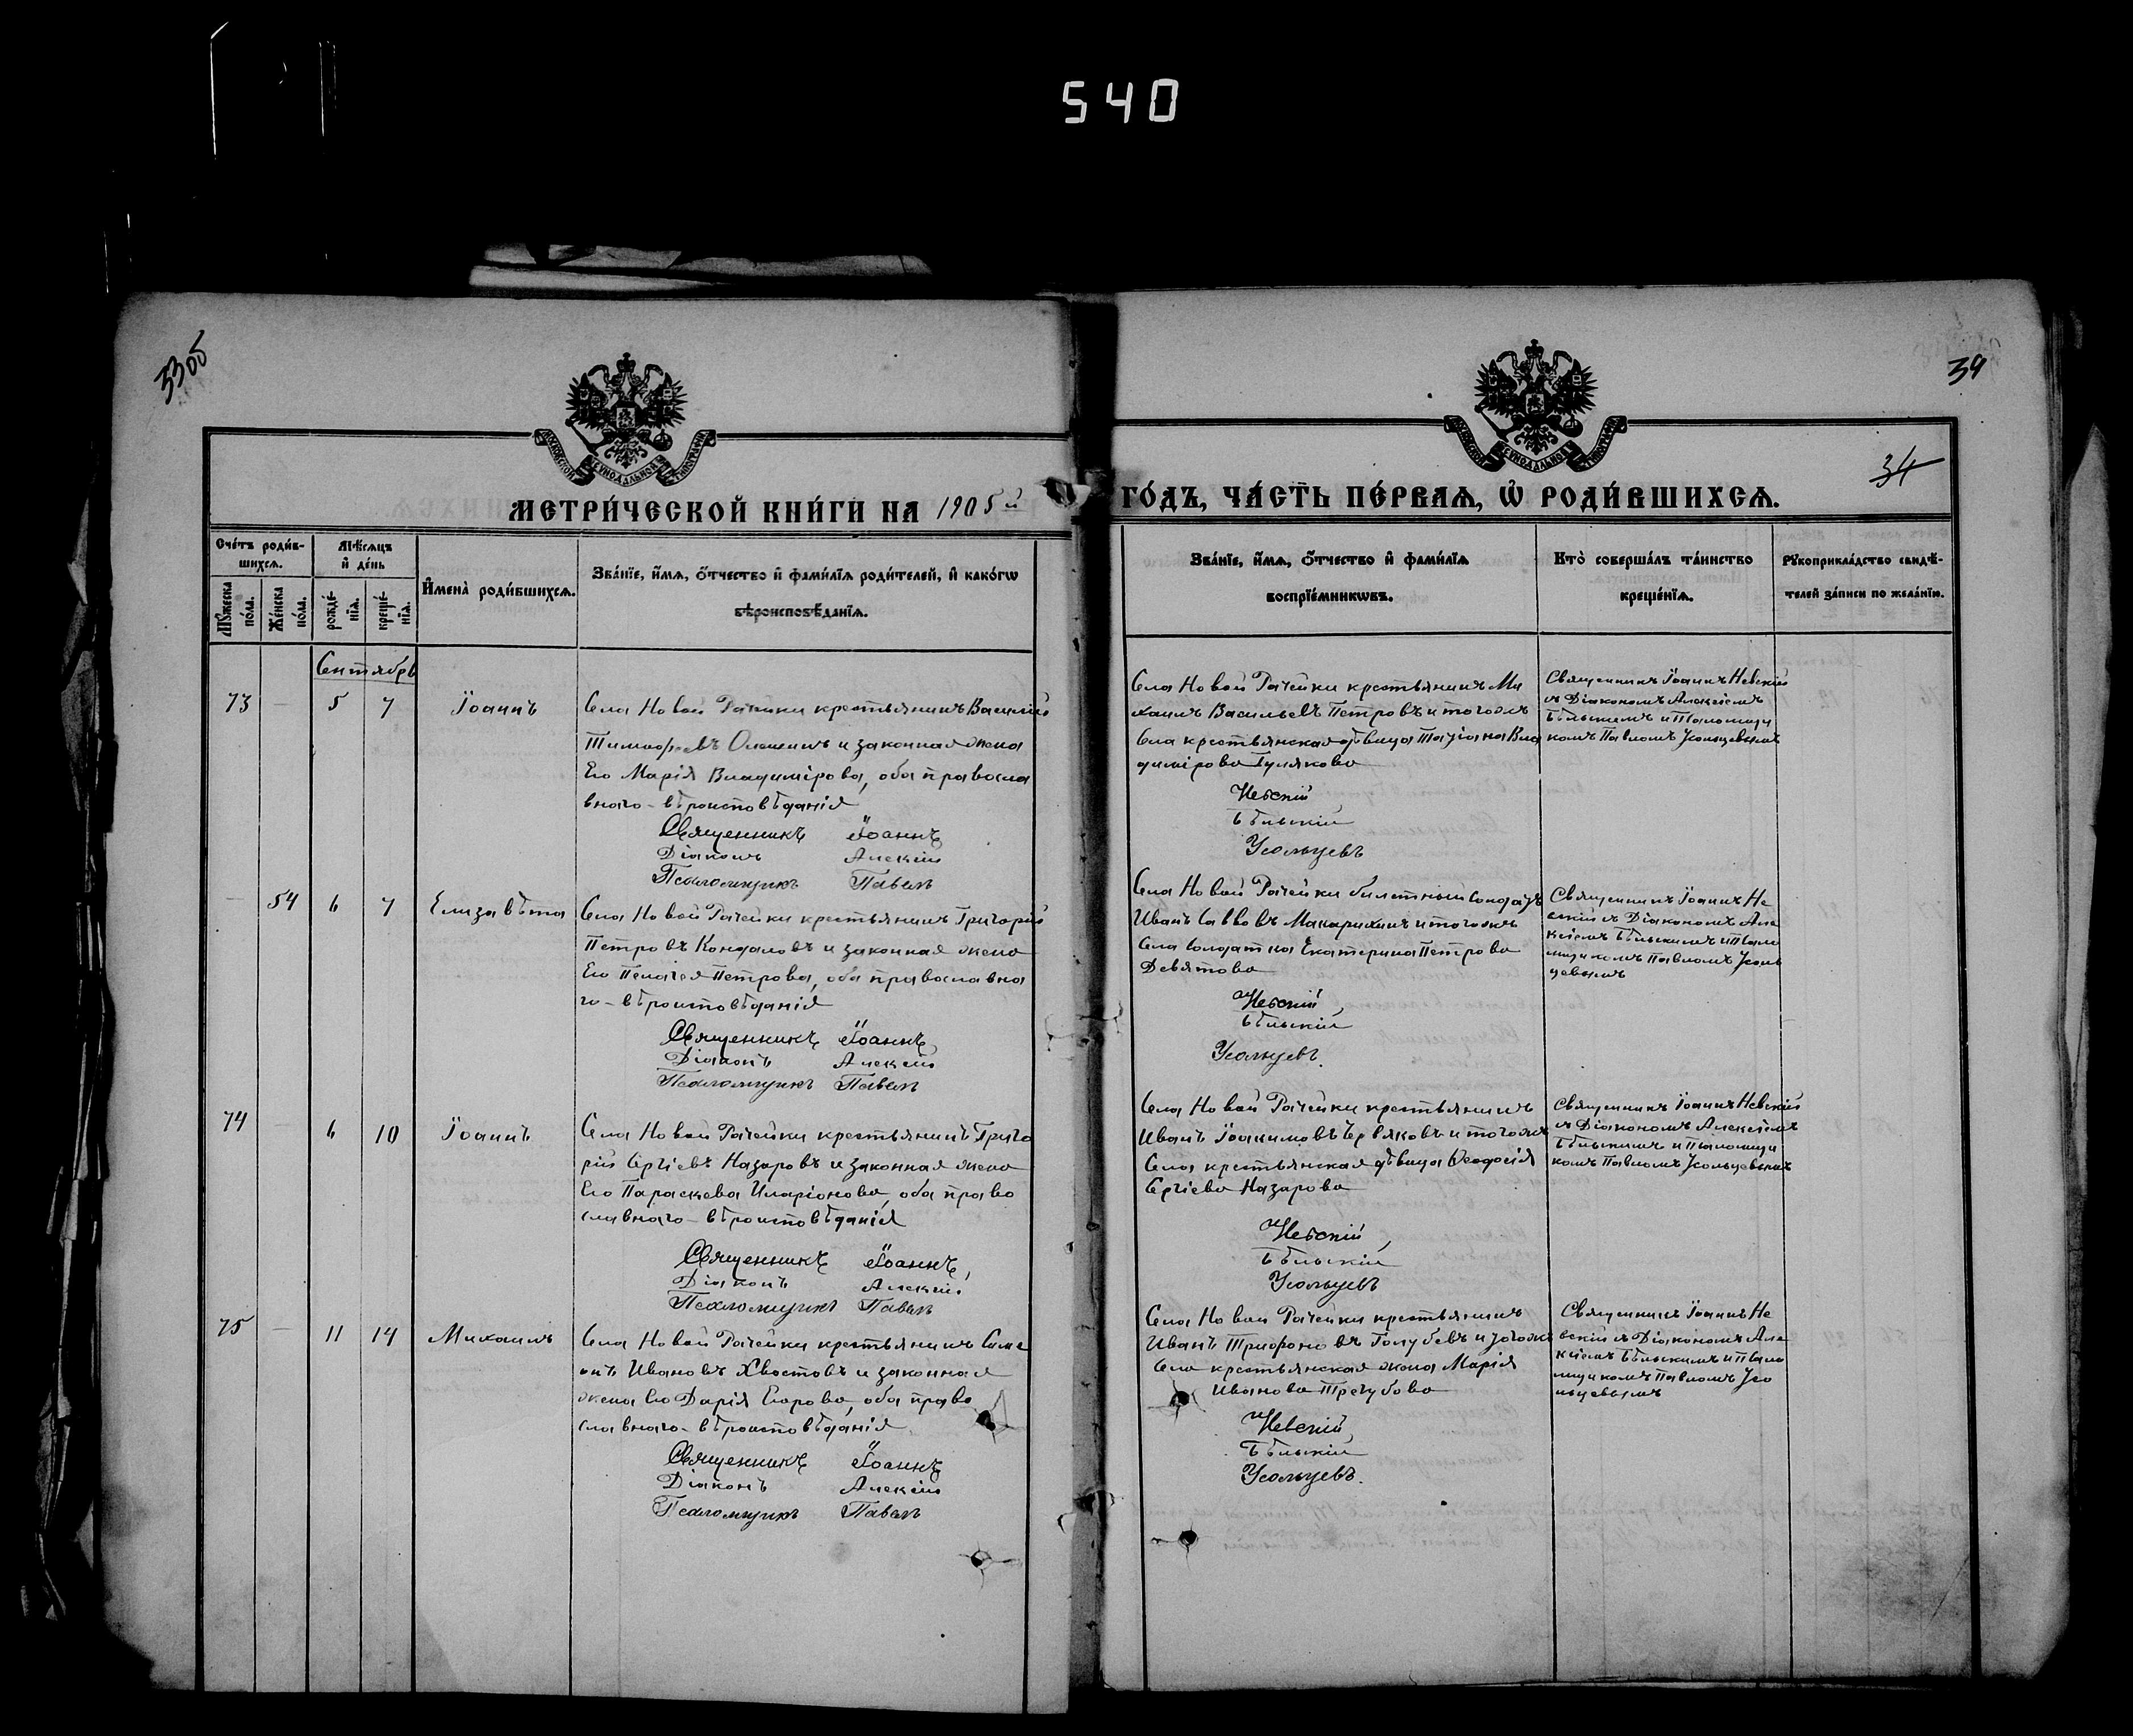 540
33об
39
34
МОСКОВСКОЙ СѴНОДАЛЬНОЙ ТИПОГРАФІИ
МОСКОВСКОЙ СѴНОДАЛЬНОЙ ТИПОГРАФІИ
МЕТРИ́ЧЕСКОЙ КНИ́ГИ НА 1905й ГО́ДЪ, ЧА́СТЬ ПЕ́РВАѦ, Ѡ҆ РОДИ́ВШИХСѦ.
Сче́тъ роди́в-
шихсѧ.
Мꙋ́жеска по́ла.
Же́нска по́ла.
Мѣ́сѧцъ
и҆ де́нь
рожде́-
нїѧ.
креще́-
нїѧ.
И҆мена̀ роди́вшихсѧ.
Зва́нїе, и҆́мѧ, ѻ҆́тчество и҆ фами́лїѧ роди́телей, и҆ како́гѡ
вѣроисповѣ́данїѧ.
Зва́нїе, и҆́мѧ, ѻ҆́тчество и҆ фами́лїѧ
воспрїе́мникѡвъ.
Кто̀ соверша́лъ та́инство
креще́нїѧ.
Рꙋкоприкла́дство свидѣ́-
телей за́писи по жела́нїю.
Сентябрь
73 — 5 7 Іоаннъ
Села Новой Рачейки крестьянинъ Василій
Тимофеевъ и законная жена
Его Марія Владимірова, оба правосла
внаго-вѣроисповѣданія
Священникъ Іоаннъ
Діаконъ Алексій
Псаломщикъ Павелъ
Села Новой Рачейки крестьянинъ Ми
хаилъ Васильевъ Петровъ и тогожъ
Села крестьянская дѣвица Татіана Вла
димірова Гулякова
Невскій
Бѣльскій
Усольцевъ
Священникъ Іоаннъ Невскій
съ Діакономъ Алексіемъ
Бѣльскимъ и Псаломщи
комъ Павломъ Усольцевымъ
— 54 6 7 Елизавѣта
Села Новой Рачейки крестьянинъ Григорій
Петровъ Кондаловъ и законная жена
Его Пелагея Петрова, оба православна
го-вѣроисповѣданія
Священникъ Іоаннъ
Діаконъ Алексій
Псаломщикъ Павелъ
Села Новой Рачейки билетный солдатъ
Иванъ Савво въ Макарихинъ и тогожъ
Села солдатка Екатерина Петрова
Девятова
Невскій
Бѣльскій
Усольцевъ.
Священникъ Іоаннъ Не
вскій съ Діакономъ Але
ксіемъ Бѣльскимъ и Псало
мщикомъ Павломъ Усоль
цевымъ
74 — 6 10 Іоаннъ
Села Новой Рачейки крестьянинъ Григо
рій Сергіевъ Назаровъ и законная жена
Его Параскева Иларіонова, оба право
славнаго-вѣроисповѣданія
Священникъ Іоаннъ
Діаконъ Алексій
Псаломщикъ Павелъ
Села Новой Рачейки крестьянинъ
Иванъ Іоакимовъ Червяковъ и тогожъ
Села крестьянская дѣвица Ѳеодосія
Сергіева Назарова
Невскій
Бѣльскій
Усольцевъ
Священникъ Іоаннъ Невскій
съ Діакономъ Алексіемъ
Бѣльскимъ и Псаломщи
комъ Павломъ Усольцевымъ
75 — 11 14 Михаилъ
Села Новой Рачейки крестьянинъ Симе
онъ Ивановъ Хвостовъ и законная
жена Его Дарія Егорова, оба право
славнаго-вѣроисповѣданія.
Священникъ Іоаннъ
Діаконъ Алексій
Псаломщикъ Павелъ
Села Новой Рачейки крестьянинъ
Иванъ Трифоновъ Голубевъ и тогожъ
Села крестьянская жена Марія
Иванова Трегубова
Невскій
Бѣльскій
Усольцевъ.
Священникъ Іоаннъ Не
вскій съ Діакономъ Але
ксіемъ Бѣльскимъ и Псало
мщикомъ Павломъ Усо
льцевымъ